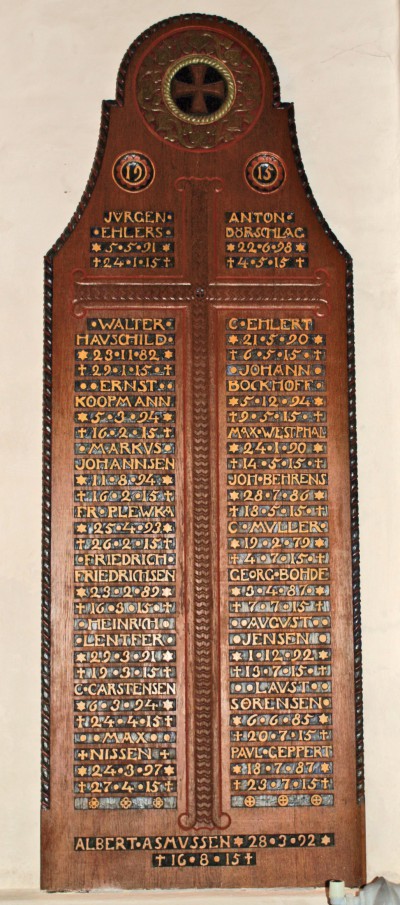 19 15
JVRGEN
EHLERS
*5·5·91*
+24·1·15+
WALTER
HAVSCHILD
*23·11·82*
+29·1·15+
ERNST
KOOPMANN
*5·3·94*
+16·2·15+
MARKVS
JOHANNSEN
*11·8·94*
+16·2·15+
FR·PLEWKA
*25·4·93*
+26·2·15+
FRIEDRICH
FRIEDRICHSEN
*23·2·89*
+16·3·15+
HEINRICH
LENTFER
*29·3·91*
+19·3·15+
C·CARSTENSEN
*6·3·94*
+24·4·15+
MAX
NISSEN
*24·3·97*
+27·4·15+
ANTON
DÖRSCHLAG
*22·6·98*
+4·5·15+
C·EHLERT
*21·5·20*
+6·5·15+
JOHANN
BOCKHOFF
*5·12·94*
+9·5·15+
MAX·WESTPHAL
*24·1·90*
+14·5·15+
JOH·BEHRENS
*28·7·86*
+18·5·15+
C·MVLLER
*19·2·79*
+4·7·15+
GEORG·BOHDE
*3·4·87*
+7·7·15+
AVGVST
JENSEN
*1·12·92*
+13·7·15+
LAVST
SØRENSEN
*6·6·85*
+20·7·15+
PAVL·GEPPERT
*18·7·87*
+23·7·15+
ALBERT·ASMVSSEN*28·3·92*
+16·8·15+